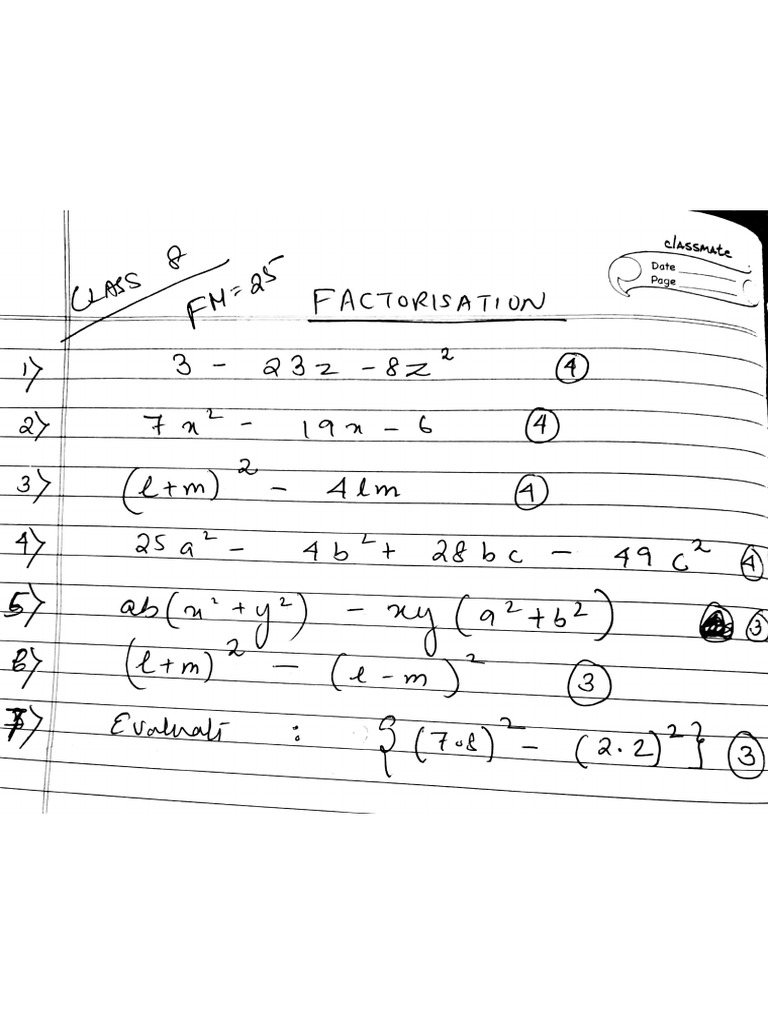 classmate
Date
Page
CLASS 8
FM = 25
FACTORISATION
1) 3 - 23z - 8z² ④
2) 7x² - 19x - 6 ④
3) (l+m)² - 4lm ④
4) 25a² - 4b² + 28bc - 49c² ④
5) ab(x² + y²) - xy(a² + b²) ③
6) (l+m)² - (l-m)² ③
7) Evaluate : {(7.8)² - (2.2)²} ③